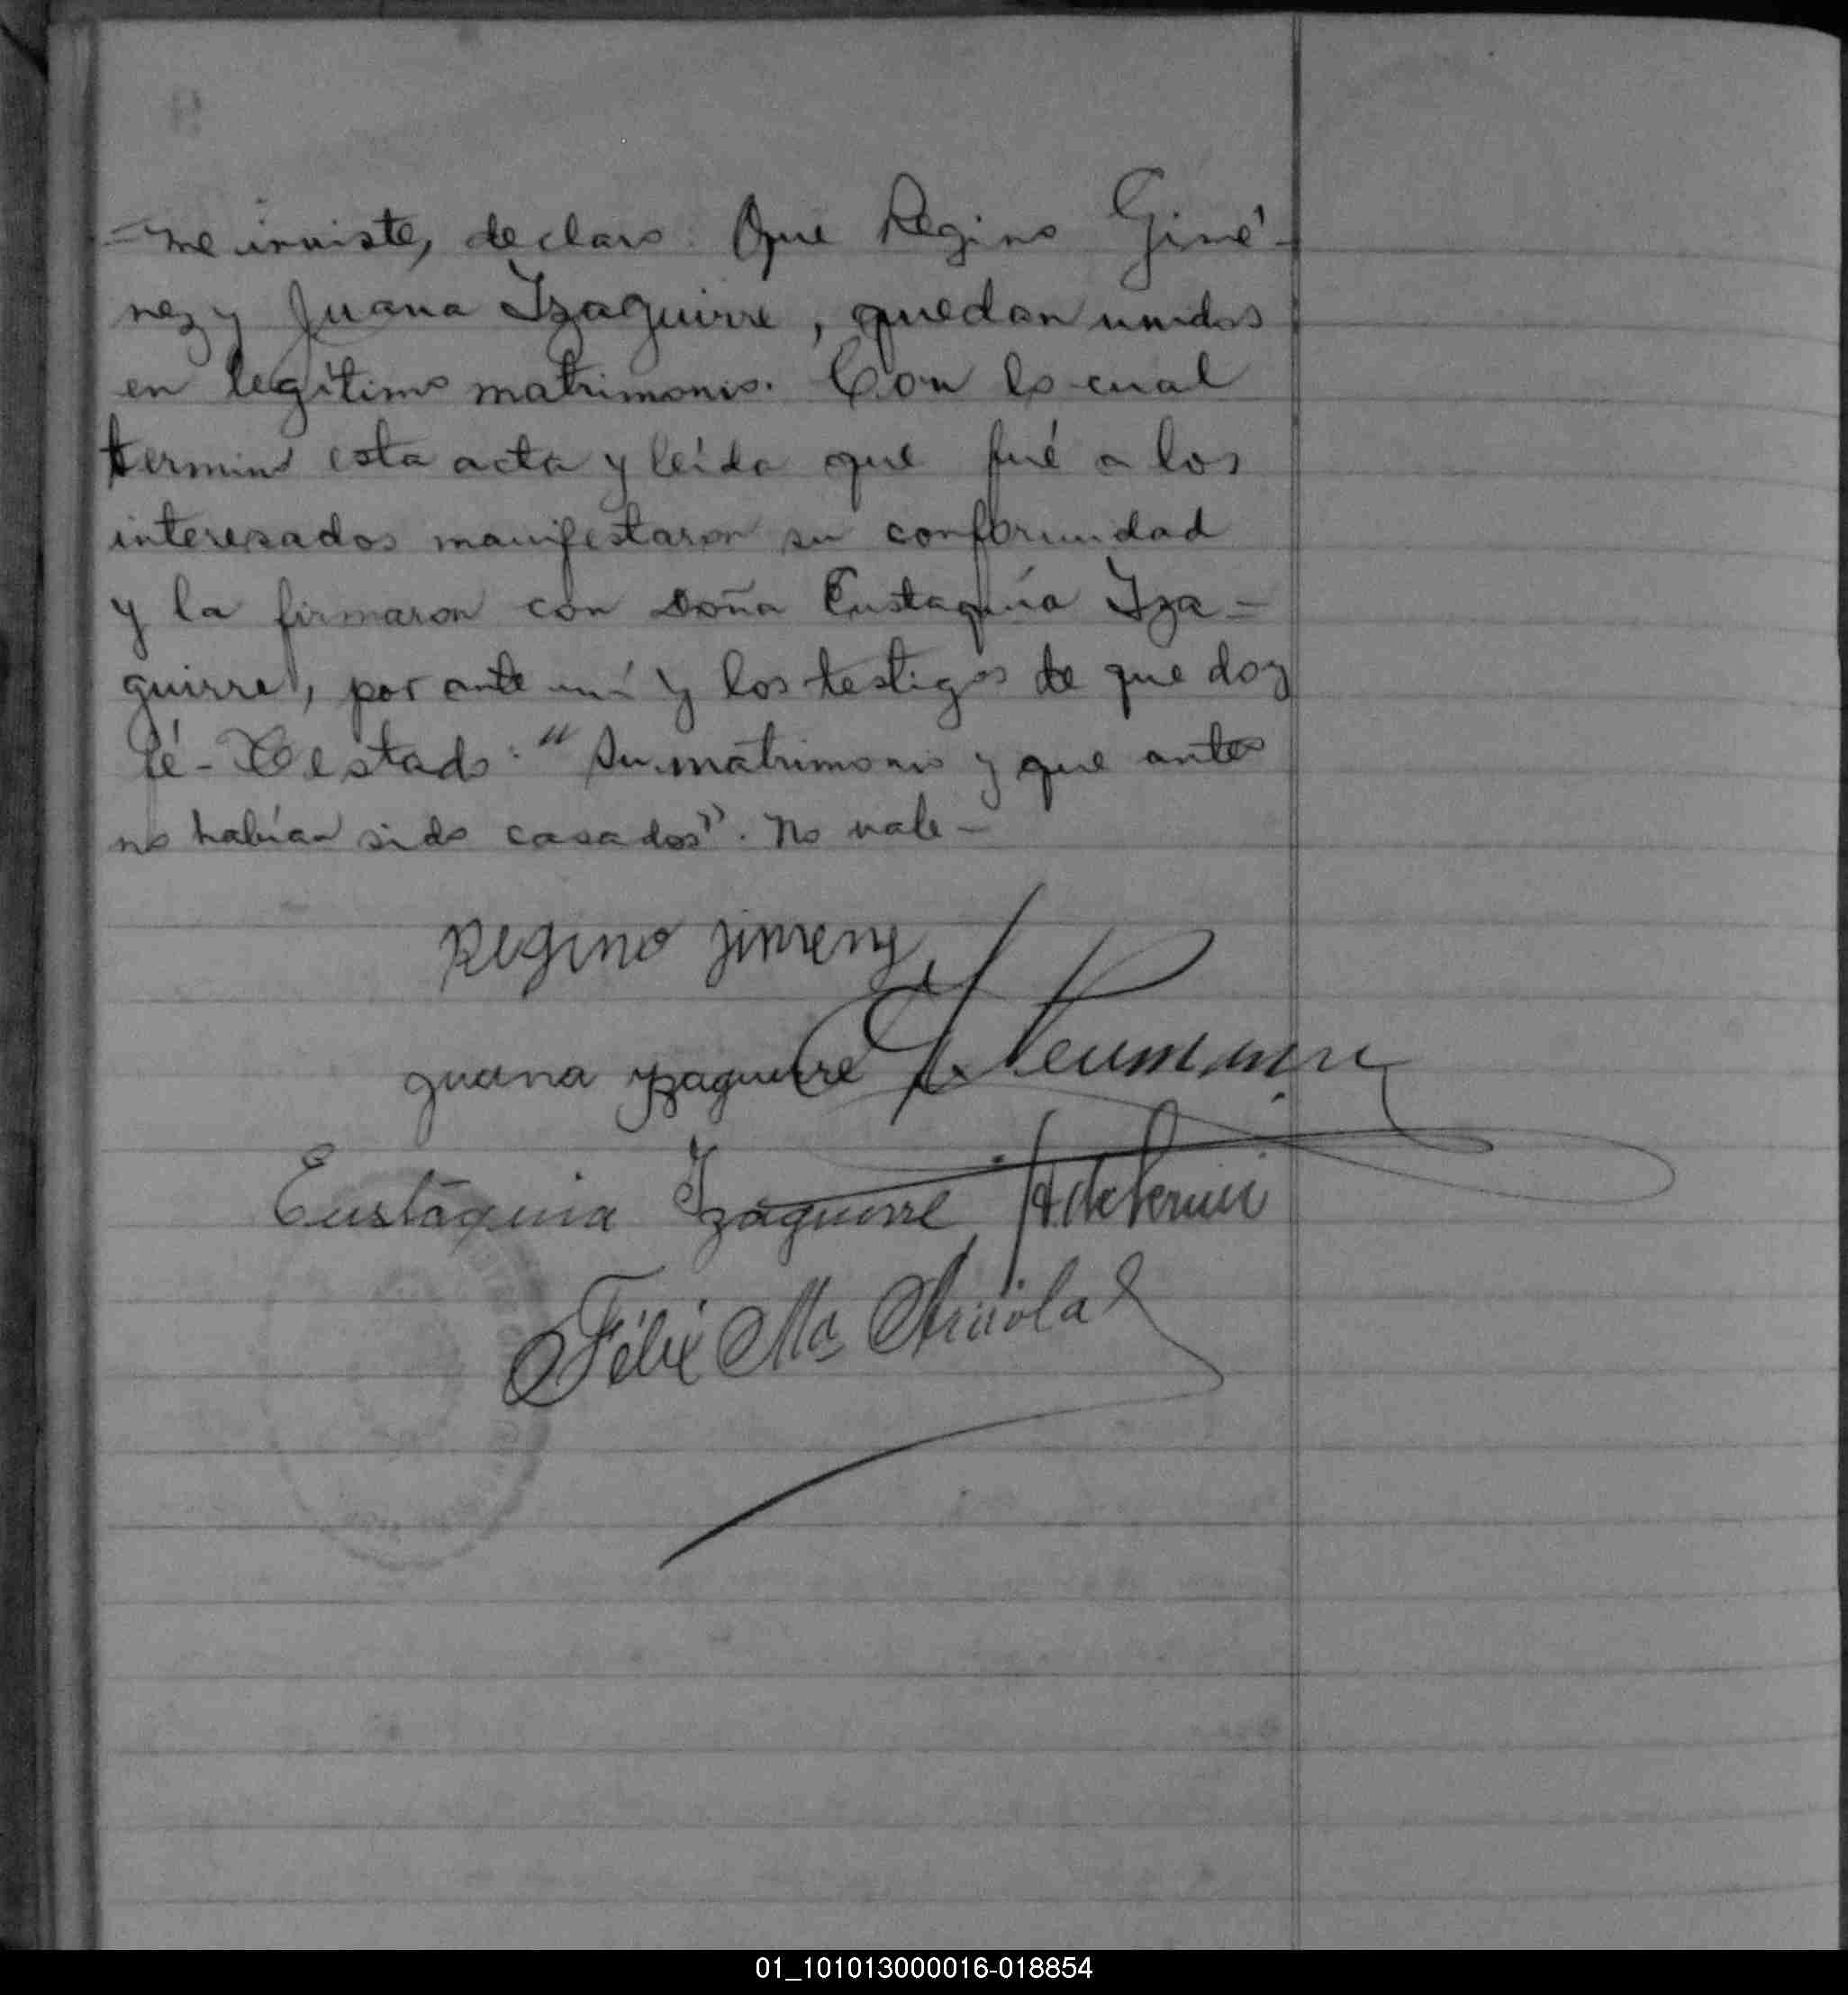 = me inviste, declaro: Que Regino Gimé-
nez y Juana Izaguirre, quedan unidos
en legítimo matrimonio. Con lo cual
terminó esta acta y leída que fué a los
interesados manifestaron su conformidad
y la firmaron con Doña Eustaquia Iza=
guirre, por ante mí y los testigos de que doy
fé - Testado: "Su matrimonio y que antes
no habían sido casados". No vale -
Regino Jimenez
Neumann
Juana Yzaguirre
Eustaquia Izaguirre
Félix Ma Arriola
01_101013000016-018854